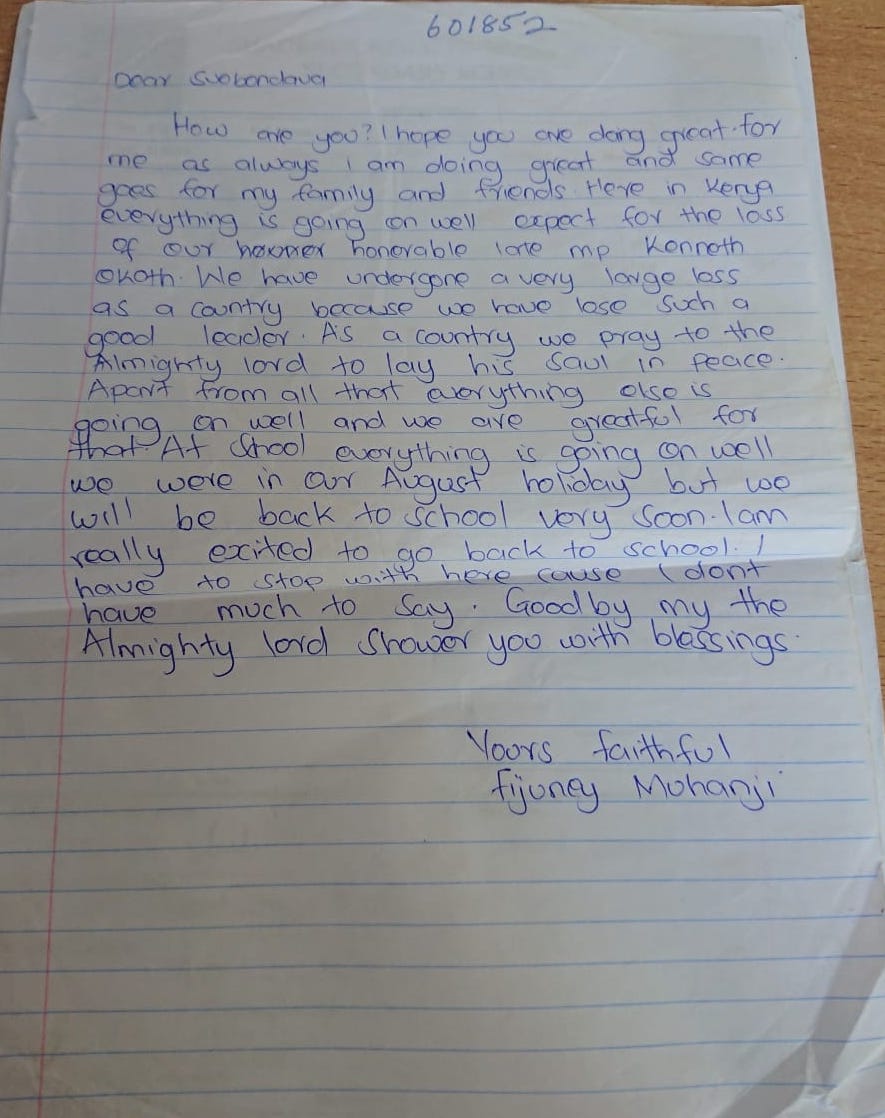 601852
Dear Svobondaua
How are you? I hope you are doing great. for
me as always I am doing great and same
goes for my family and friends. Here in Kenya
everything is going on well expect for the loss
of our honorable late mp Kenneth
Okoth. We have undergone a very large loss
as a country because we have lose such a
good leader. As a country we pray to the
Almighty lord to lay his Saul in peace.
Apart from all that everything else is
going on well and we are greatful for
that. At School everything is going on well
we were in our August holiday but we
will be back to school very soon. I am
really exited to go back to school. I
have to stop with here cause I dont
have much to say. Goodby my the
Almighty lord shower you with blessings.
Yours faithful
fijoney Mohanji